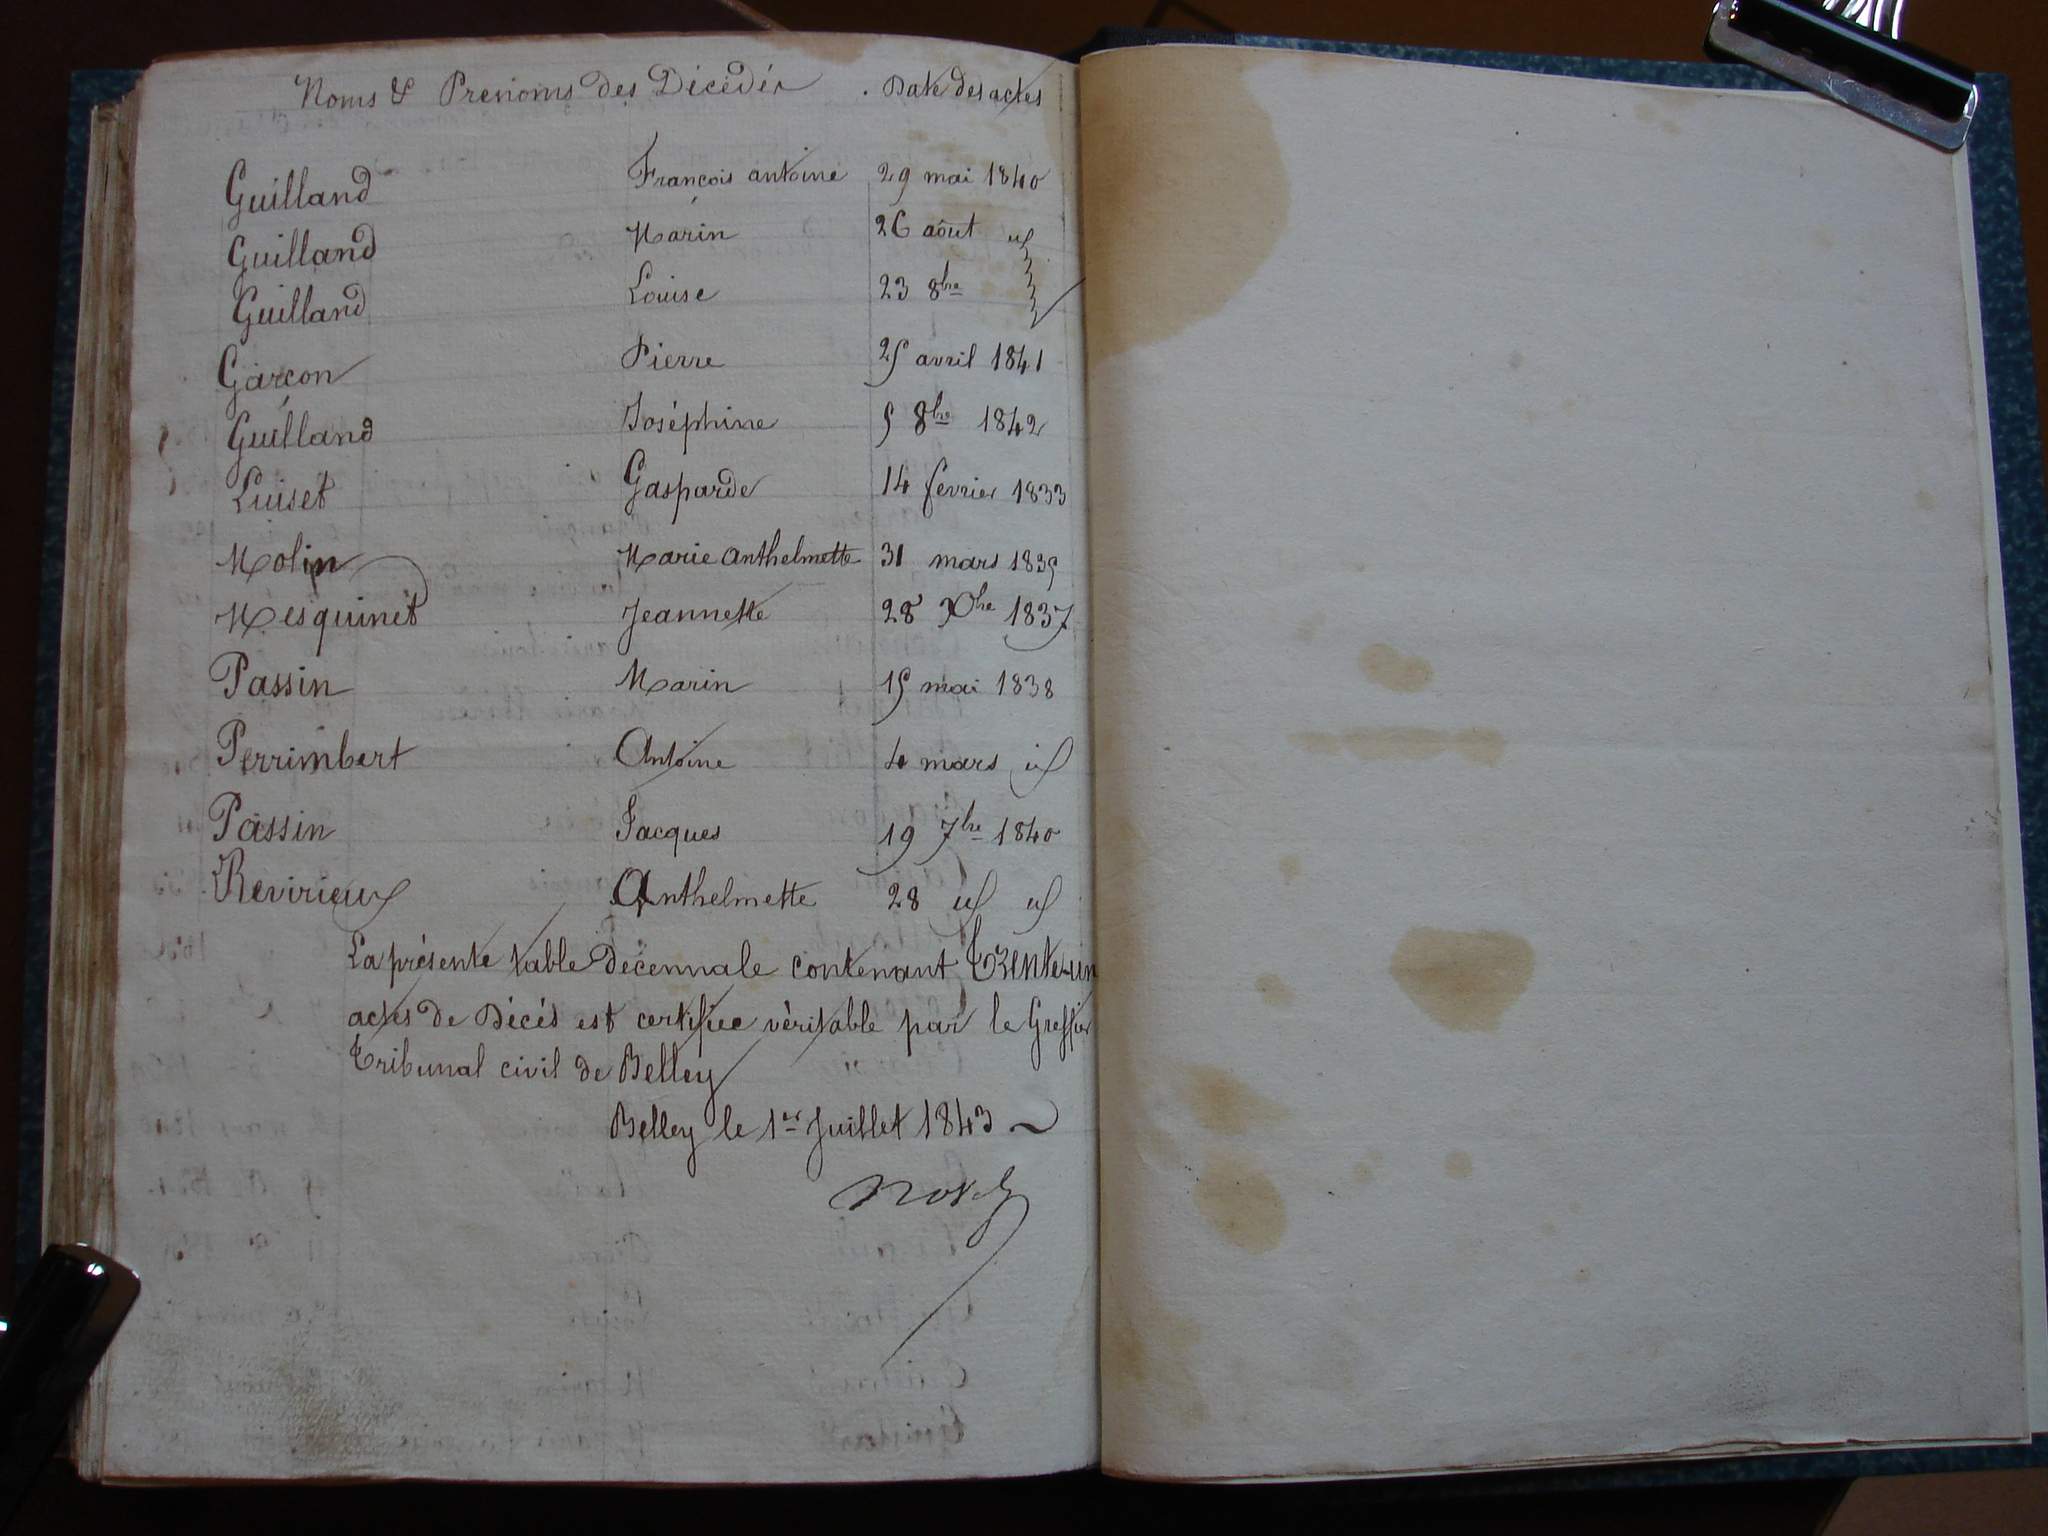 Noms & Prenoms des Décédés . Date des actes
Guilland François antoine 29 mai 1840
Guilland Marin 26 août id
Guilland Louise 23 8bre
Garçon Pierre 25 avril 1841
Guilland Joséphine 5 8bre 1842
Luiset Gasparde 14 fevrier 1833
Molin Marie anthelmette 31 mars 1835
Mesquinet Jeannette 28 Xbre 1837
Passin Marin 15 mai 1838
Perrimbert Antoine 4 mars id
Passin Jacques 19 7bre 1840
Revirieux Anthelmette 28 id id
La présente table décennale contenant Trente-un
actes de Décés est certifiée véritable par le Greffier
Tribunal civil de Belley
Belley le 1er Juillet 1843